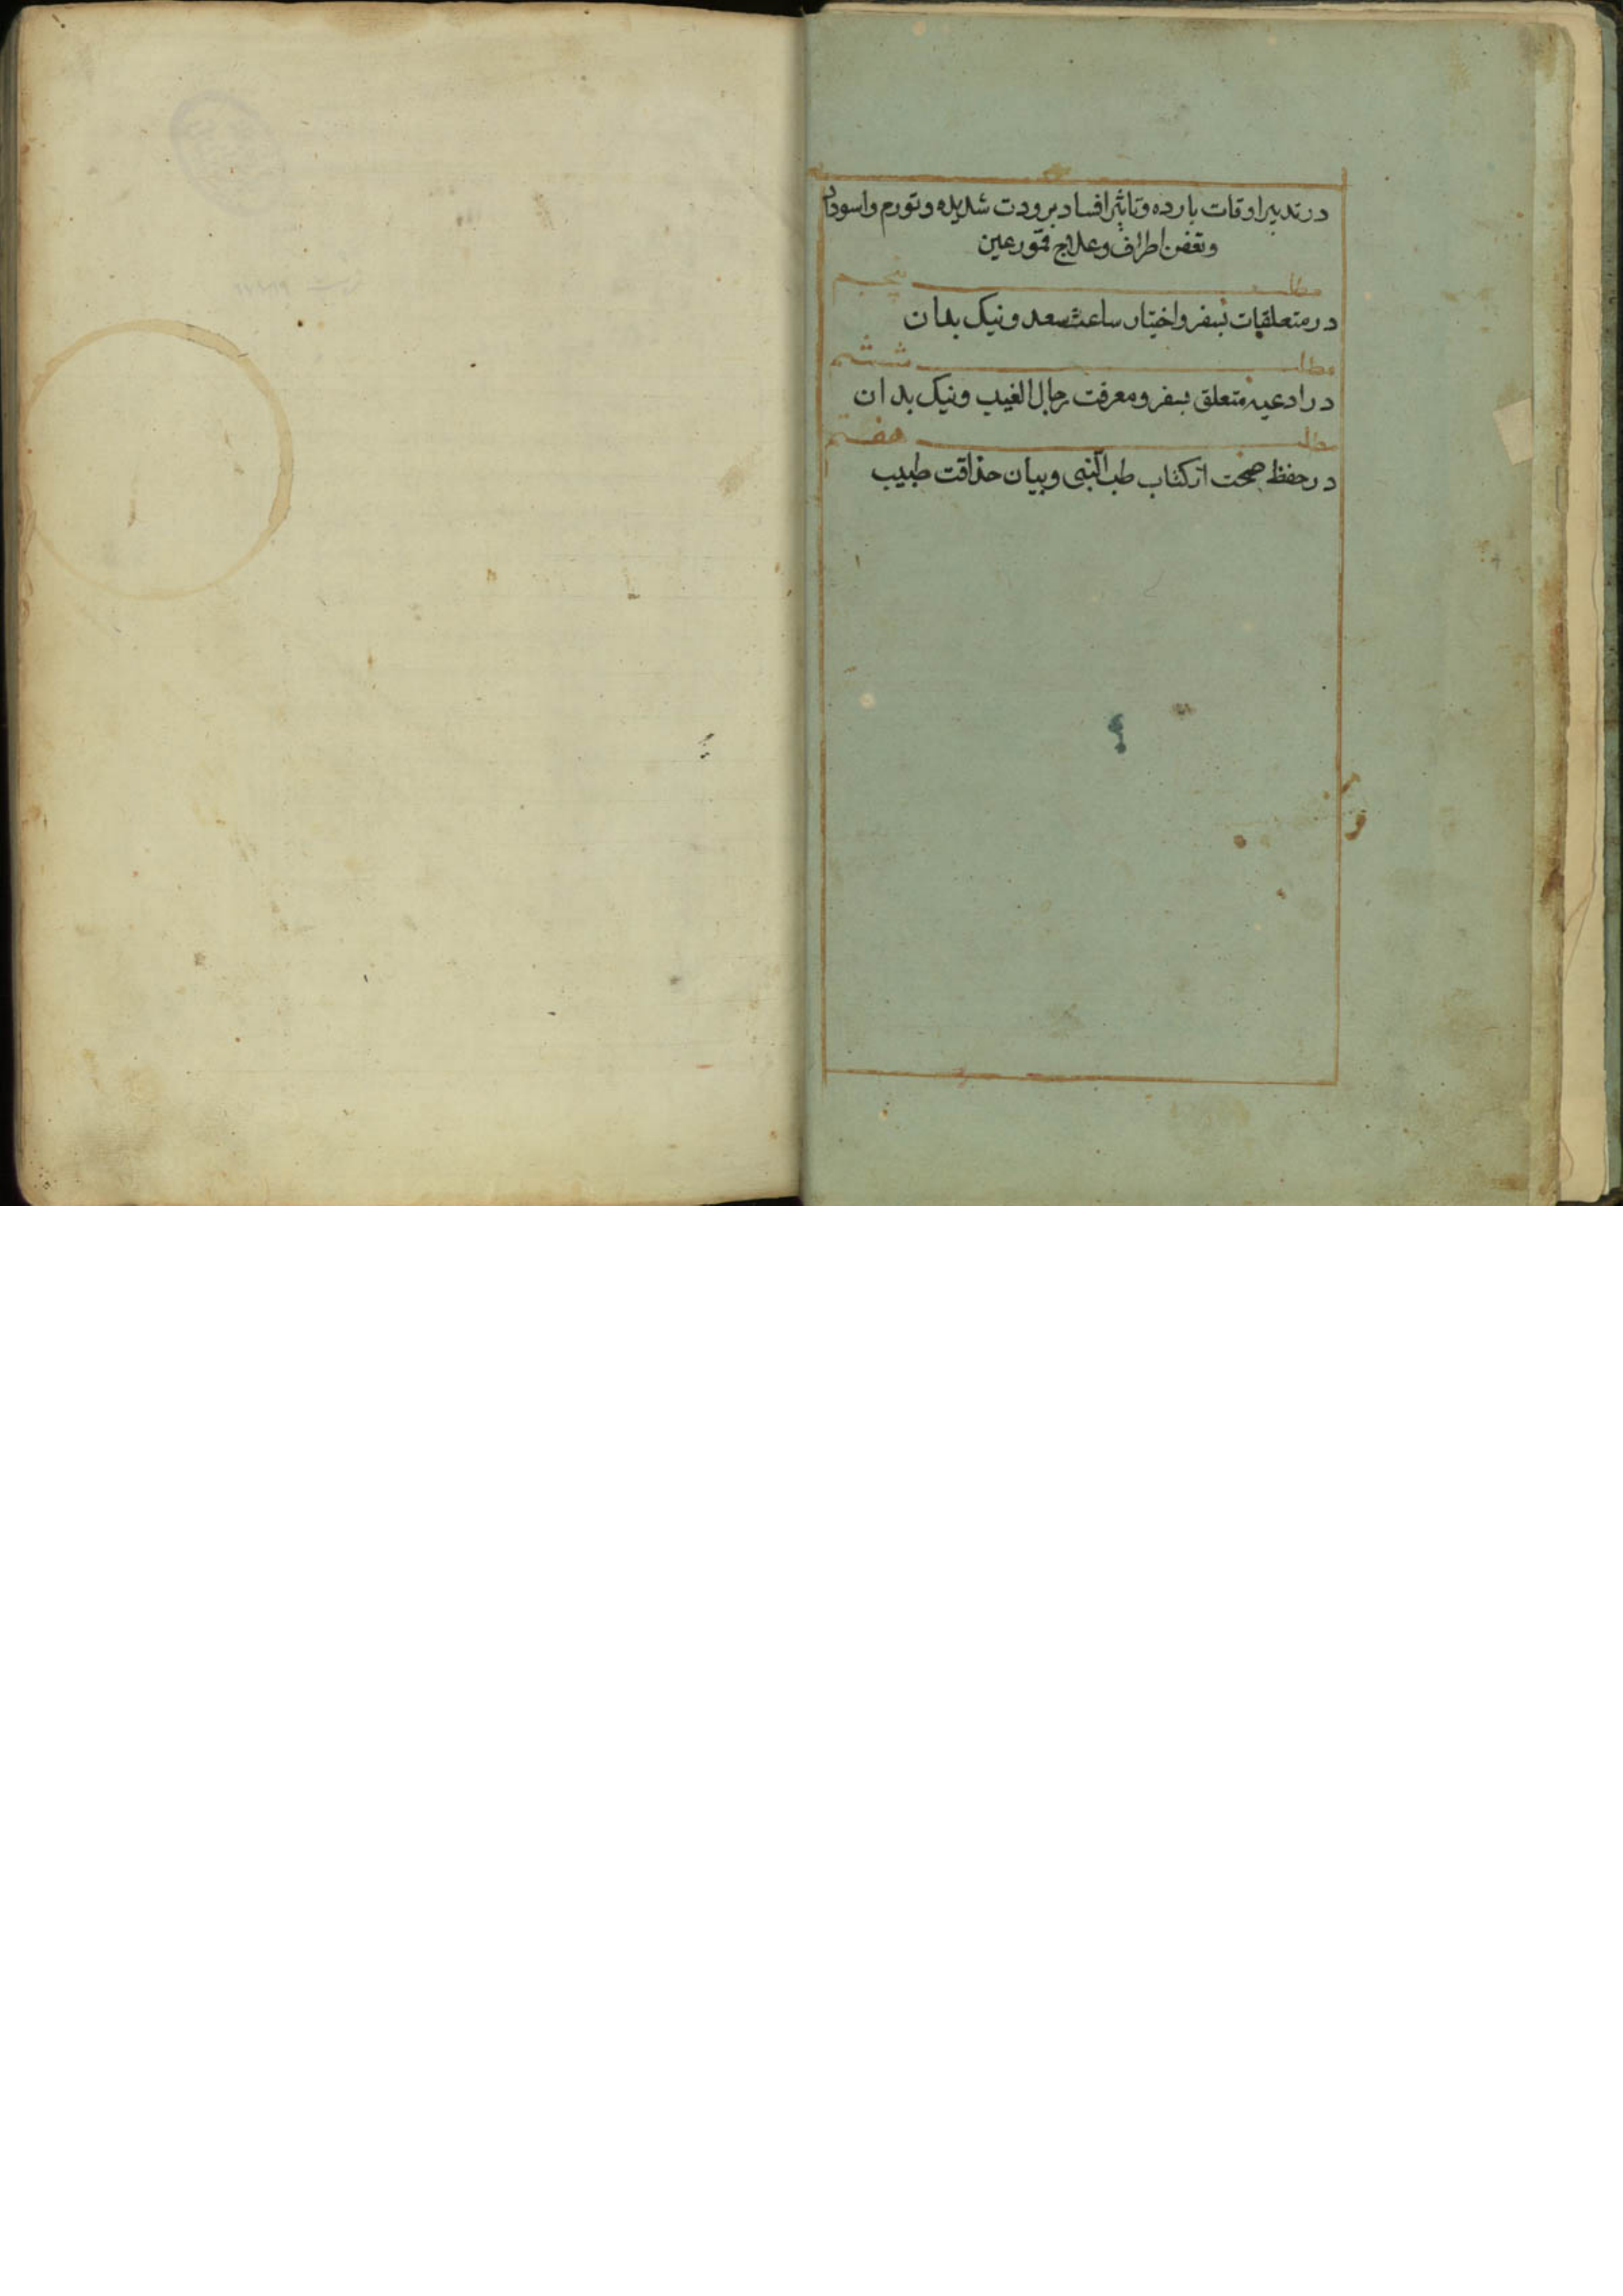 در تدبیر اوقات بارده و تاثیر افساد برودت شدیده و تورم و اسوداد
و تعفن اطراف و علاج قمور عین
مطلب پنجم
در متعلقات بسفر و اختیار ساعت سعد و نیک بدان
مطلب ششم
در ادعیه متعلق بسفر و معرفت رجال الغیب و نیک بدان
مطلب هفتم
در حفظ صحت از کتاب طب النبی و بیان حذاقت طبیب